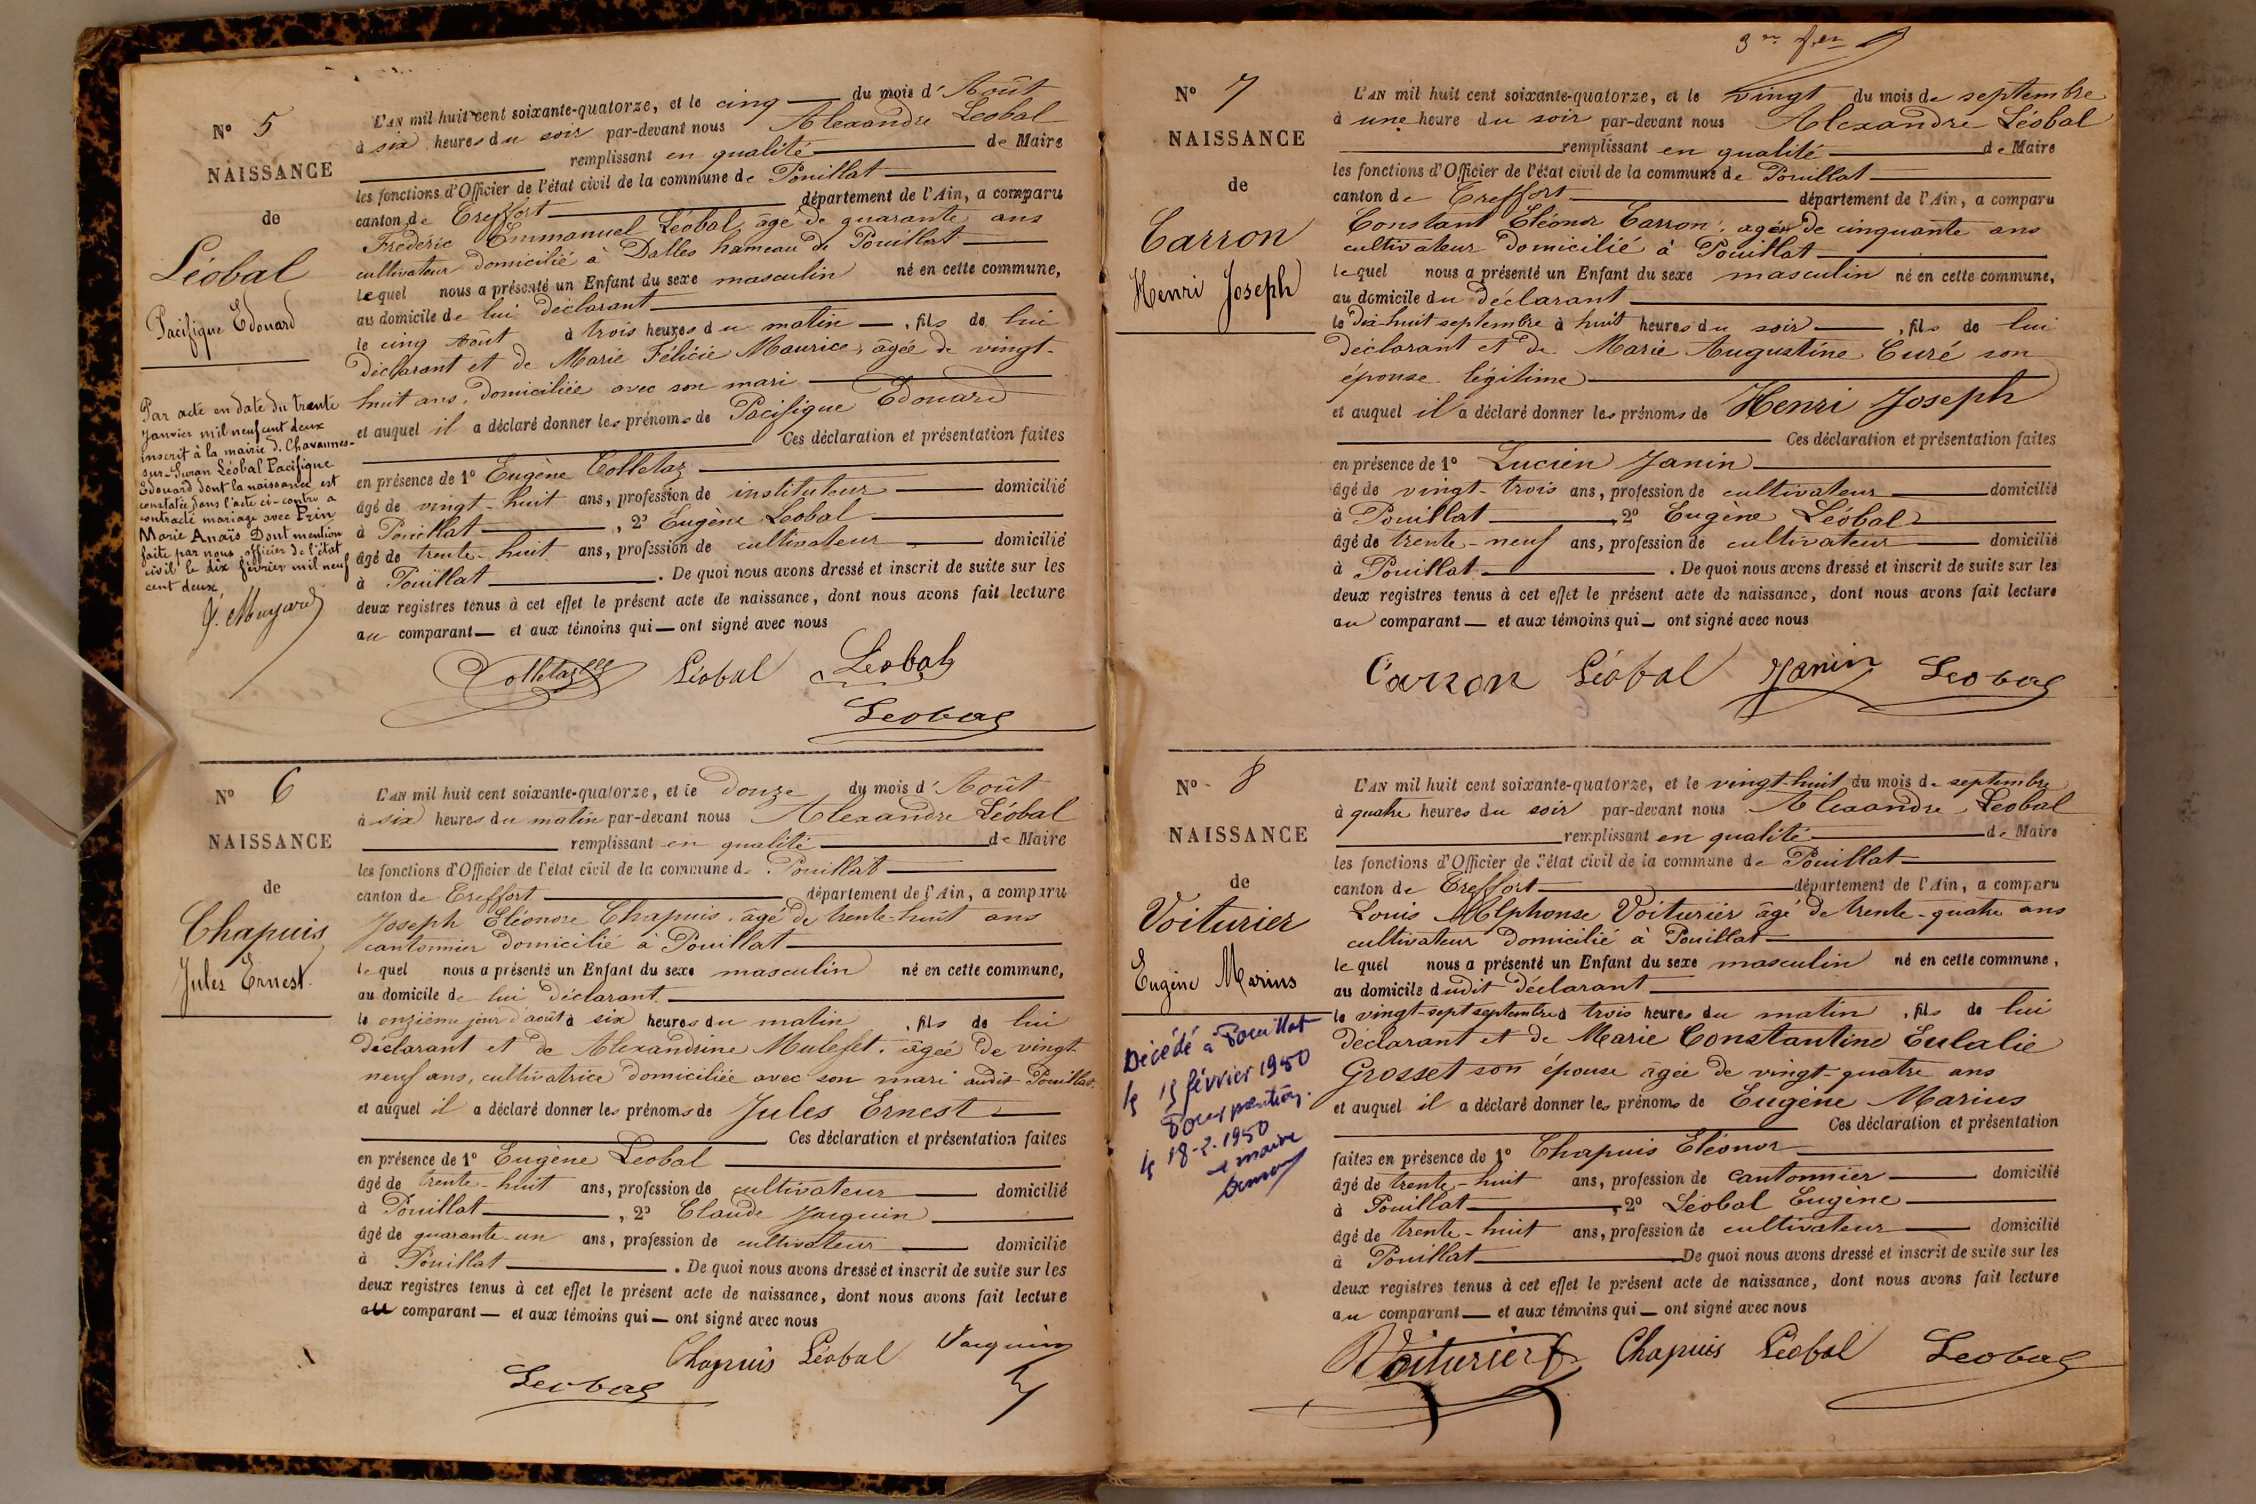 N° 5
NAISSANCE
de
Léobal
Pacifique Edouard
Par acte en date du trente
Janvier mil neuf cent deux
inscrit à la mairie d. Chavannes-
sur-Suran Léobal Pacifique
Edouard dont la naissance est
constatée dans l'acte ci-contre a
contracté mariage avec Prin
Marie Anaïs Dont mention
faite par nous officier de l'état
civil le dix février mil neuf
cent deux
L'AN mil huit cent soixante-quatorze, et le cinq du mois d'Août
à six heures du soir par-devant nous Alexandre Léobal
remplissant en qualité de Maire
les fonctions d'Officier de l'état civil de la commune de Pouillat
canton de Treffort département de l'Ain, a comparu
Frédéric Emmanuel Léobal, âgé de quarante ans
cultivateur domicilié à Dalles hameau de Pouillat
lequel nous a présenté un Enfant du sexe masculin né en cette commune,
au domicile de lui déclarant
le cinq Août à trois heures du matin, fils de lui
déclarant et de Marie Félicie Maurice, âgée de vingt-
huit ans, domiciliée avec son mari
et auquel il a déclaré donner les prénoms de Pacifique Edouard
Ces déclaration et présentation faites
en présence de 1° Eugène Colletaz
âgé de vingt-huit ans, profession de instituteur domicilié
à Pouillat, 2° Eugène Léobal
âgé de trente-huit ans, profession de cultivateur domicilié
à Pouillat. De quoi nous avons dressé et inscrit de suite sur les
deux registres tenus à cet effet le présent acte de naissance, dont nous avons fait lecture
au comparant et aux témoins qui ont signé avec nous
Colletaz Léobal Léobal
Leobal
N° 6
NAISSANCE
de
Chapuis
Jules Ernest.
L'AN mil huit cent soixante-quatorze, et le douze du mois d'Août
à six heures du matin par-devant nous Alexandre Léobal
remplissant en qualité de Maire
les fonctions d'Officier de l'état civil de la commune d. Pouillat
canton de Treffort département de l'Ain, a comparu
Joseph Eléonore Chapuis, âgé de trente-huit ans
cantonnier domicilié à Pouillat
lequel nous a présenté un Enfant du sexe masculin né en cette commune,
au domicile de lui déclarant.
le onzième jour d'août à six heures du matin, fils de lui
déclarant et de Alexandrine Mulefet, âgée de vingt-
neuf ans, cultivatrice domiciliée avec son mari audit Pouillat.
et auquel il a déclaré donner les prénoms de Jules Ernest
Ces déclaration et présentation faites
en présence de 1° Eugène Leobal
âgé de trente-huit ans, profession de cultivateur domicilié
à Pouillat, 2° Claude Jacquin
âgé de quarante-un ans, profession de cultivateur domicilié
à Pouillat. De quoi nous avons dressé et inscrit de suite sur les
deux registres tenus à cet effet le présent acte de naissance, dont nous avons fait lecture
au comparant et aux témoins qui ont signé avec nous
Chapuis Léobal Jacquin
Leobal
N° 7
NAISSANCE
de
Carron
Henri Joseph
L'AN mil huit cent soixante-quatorze, et le vingt du mois de septembre
à une heure du soir par-devant nous Alexandre Léobal
remplissant en qualité de Maire
les fonctions d'Officier de l'état civil de la commune de Pouillat
canton de Treffort département de l'Ain, a comparu
Constant Eléonor Carron, âgé de cinquante ans
cultivateur domicilié à Pouillat
lequel nous a présenté un Enfant du sexe masculin né en cette commune,
au domicile du déclarant
le dix-huit septembre à huit heures du soir, fils de lui
déclarant et de Marie Augustine Curé son
épouse légitime
et auquel il a déclaré donner les prénoms de Henri Joseph
Ces déclaration et présentation faites
en présence de 1° Lucien Janin
âgé de vingt-trois ans, profession de cultivateur domicilié
à Pouillat, 2° Eugène Léobal
âgé de trente-neuf ans, profession de cultivateur domicilié
à Pouillat. De quoi nous avons dressé et inscrit de suite sur les
deux registres tenus à cet effet le présent acte de naissance, dont nous avons fait lecture
au comparant et aux témoins qui ont signé avec nous
Carron Léobal Janin Leobal
N° 8
NAISSANCE
de
Voiturier
Eugène Marius
Décédé à Pouillat
le 15 février 1950
le 18-2-1950
le maire
L'AN mil huit cent soixante-quatorze, et le vingt-huit du mois de septembre
à quatre heures du soir par-devant nous Alexandre Léobal
remplissant en qualité de Maire
les fonctions d'Officier de l'état civil de la commune de Pouillat
canton de Treffort département de l'Ain, a comparu
Louis Alphonse Voiturier âgé de trente-quatre ans
cultivateur domicilié à Pouillat
lequel nous a présenté un Enfant du sexe masculin né en cette commune,
au domicile dudit déclarant
le vingt-sept septembre à trois heures du matin, fils de lui
déclarant et de Marie Constantine Eulalie
Grosset son épouse âgée de vingt-quatre ans
et auquel il a déclaré donner les prénoms de Eugène Marius
Ces déclaration et présentation
faites en présence de 1° Chapuis Eléonor
âgé de trente-huit ans, profession de cantonnier domicilié
à Pouillat, 2° Léobal Eugène
âgé de trente-huit ans, profession de cultivateur domicilié
à Pouillat De quoi nous avons dressé et inscrit de suite sur les
deux registres tenus à cet effet le présent acte de naissance, dont nous avons fait lecture
au comparant et aux témoins qui ont signé avec nous
Voiturier Chapuis Léobal Leobal